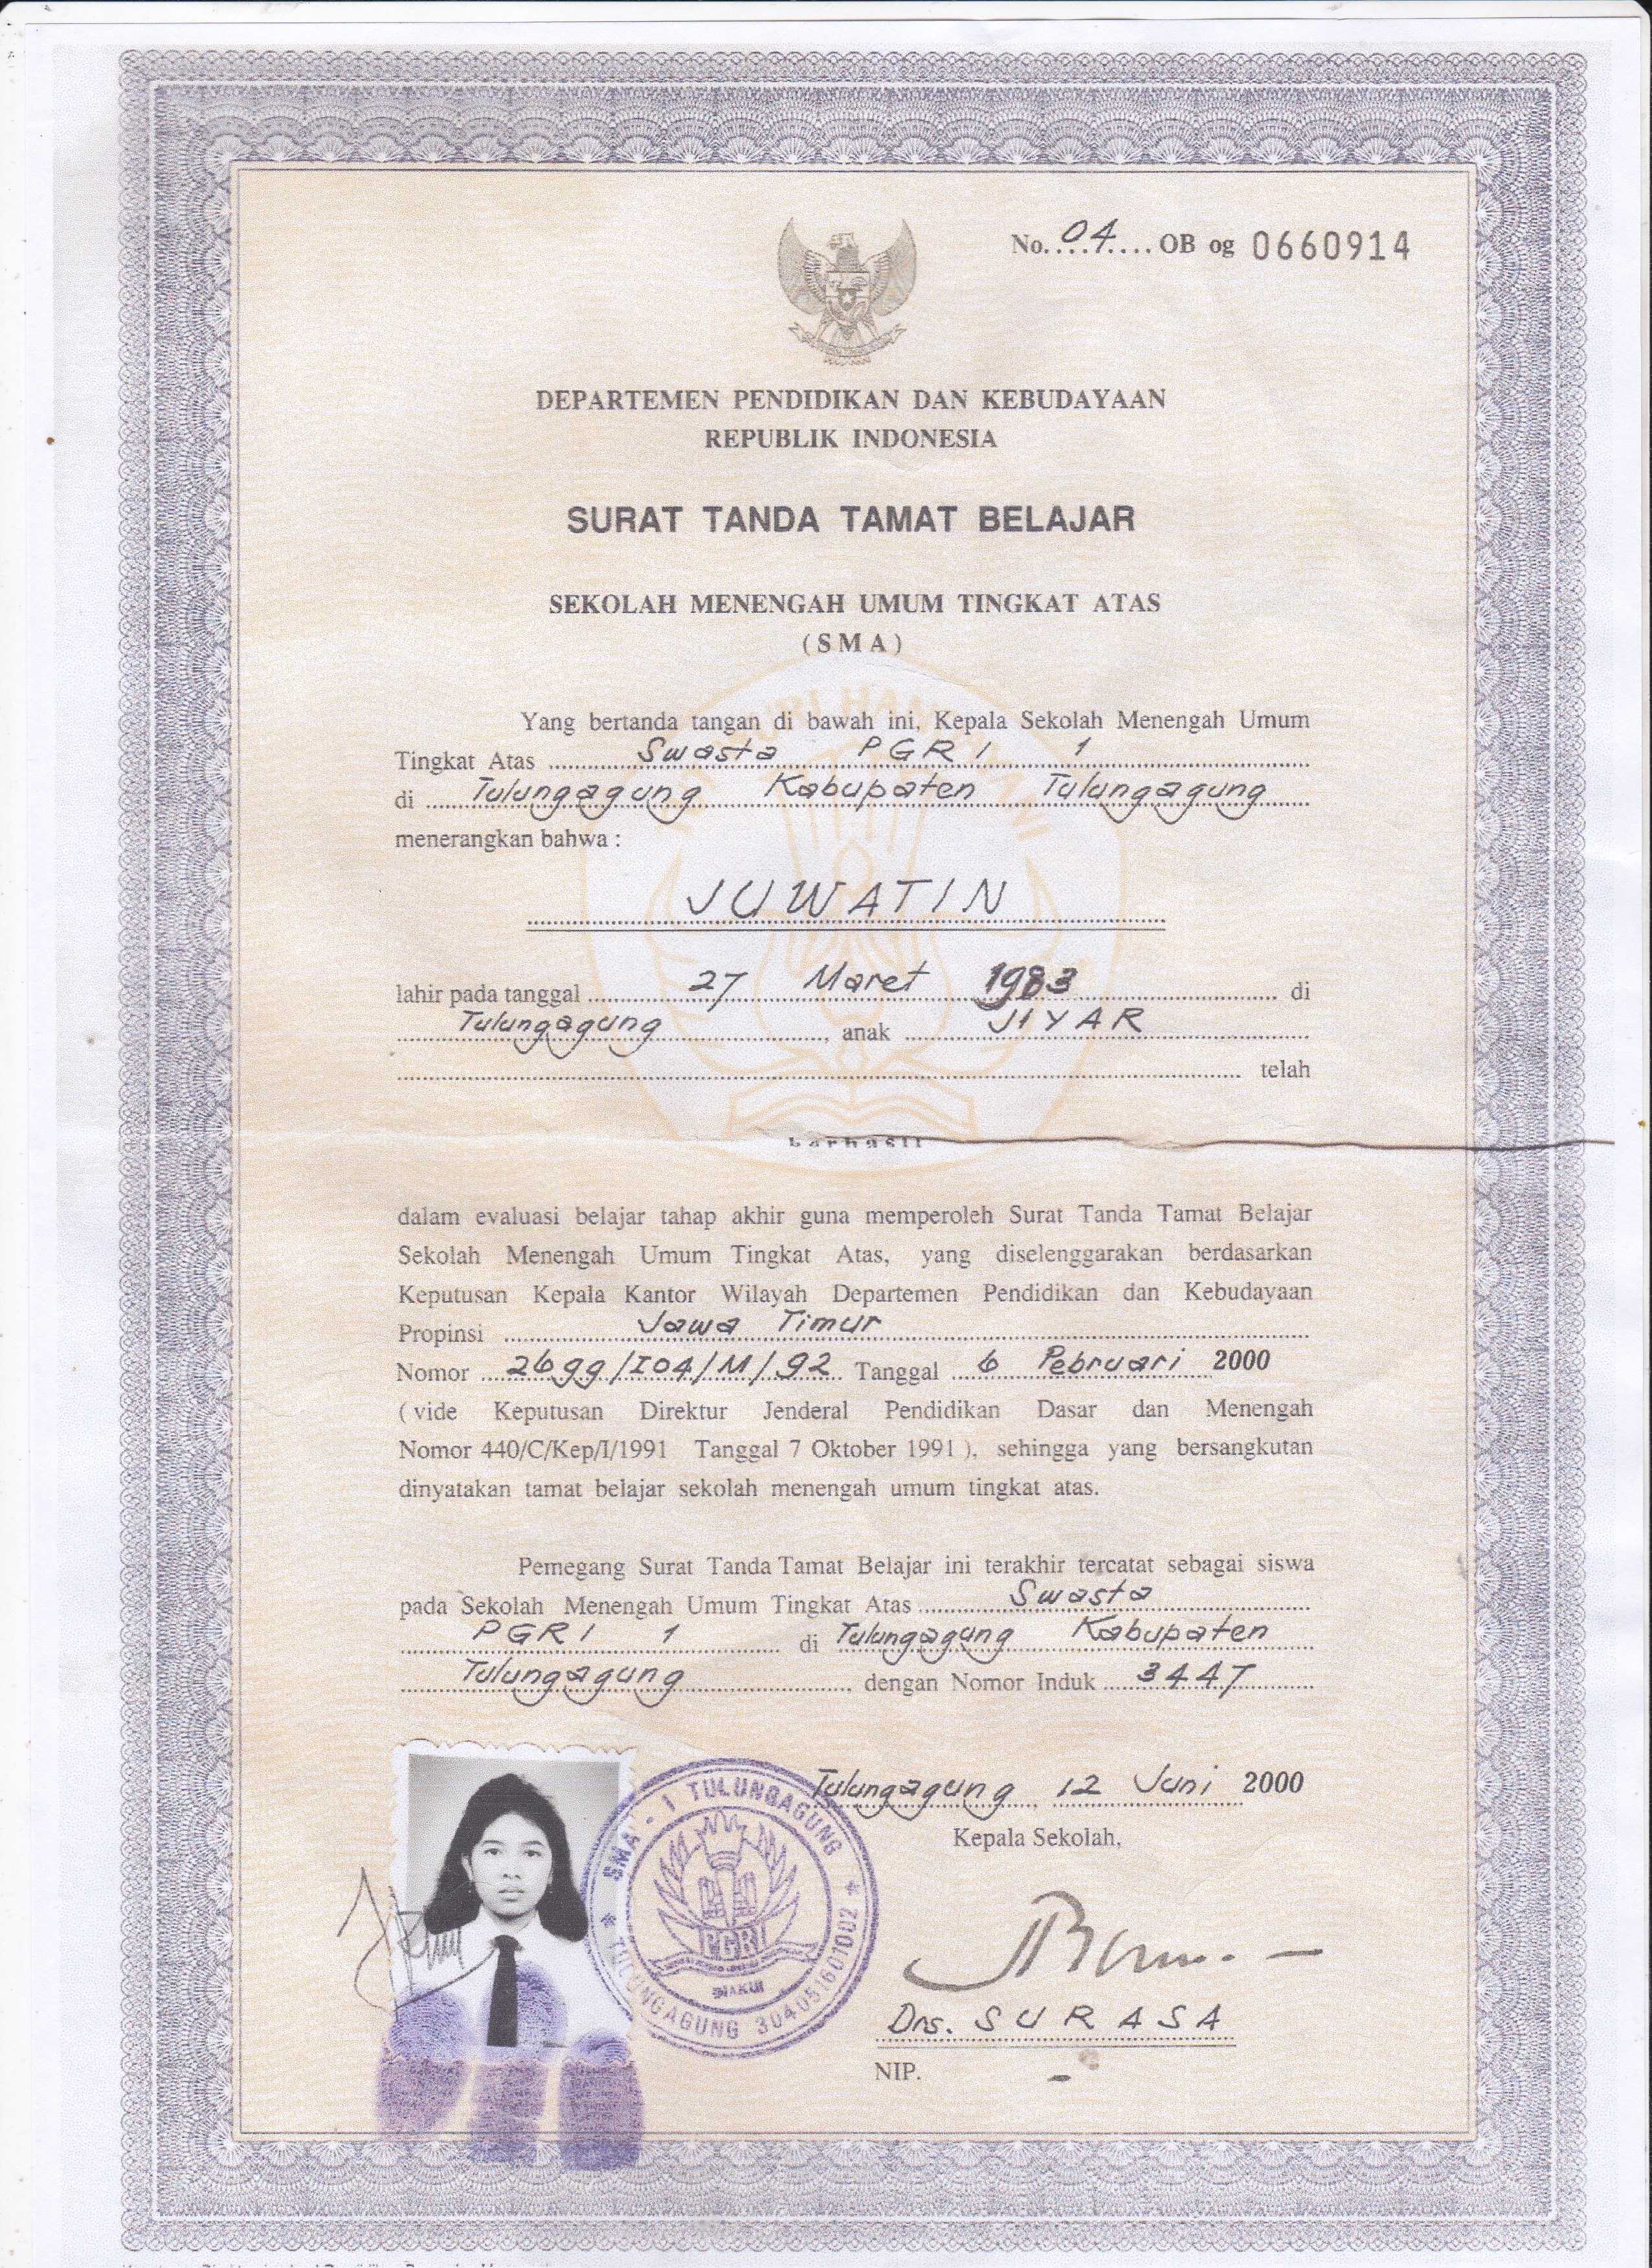 No. 04 OB og 0660914
DEPARTEMEN PENDIDIKAN DAN KEBUDAYAAN
REPUBLIK INDONESIA
SURAT TANDA TAMAT BELAJAR
SEKOLAH MENENGAH UMUM TINGKAT ATAS
(SMA)
Yang bertanda tangan di bawah ini, Kepala Sekolah Menengah Umum
Tingkat Atas Swasta PGRI 1
di Tulungagung Kabupaten Tulungagung
menerangkan bahwa :
JUWATIN
lahir pada tanggal 27 Maret 1983 di
Tulungagung, anak JIYAR
telah
berhasil
dalam evaluasi belajar tahap akhir guna memperoleh Surat Tanda Tamat Belajar
Sekolah Menengah Umum Tingkat Atas, yang diselenggarakan berdasarkan
Keputusan Kepala Kantor Wilayah Departemen Pendidikan dan Kebudayaan
Propinsi Jawa Timur
Nomor 2699/I04/M/92 Tanggal 6 Pebruari 2000
( vide Keputusan Direktur Jenderal Pendidikan Dasar dan Menengah
Nomor 440/C/Kep/I/1991 Tanggal 7 Oktober 1991 ), sehingga yang bersangkutan
dinyatakan tamat belajar sekolah menengah umum tingkat atas.
Pemegang Surat Tanda Tamat Belajar ini terakhir tercatat sebagai siswa
pada Sekolah Menengah Umum Tingkat Atas Swasta
PGRI 1 di Tulungagung Kabupaten
Tulungagung, dengan Nomor Induk 3447
Tulungagung, 12 Juni 2000
Kepala Sekolah,
SMA - 1 TULUNGAGUNG
PGRI
DIAKUI
TULUNGAGUNG 304051601002
Drs. SURASA
NIP. -